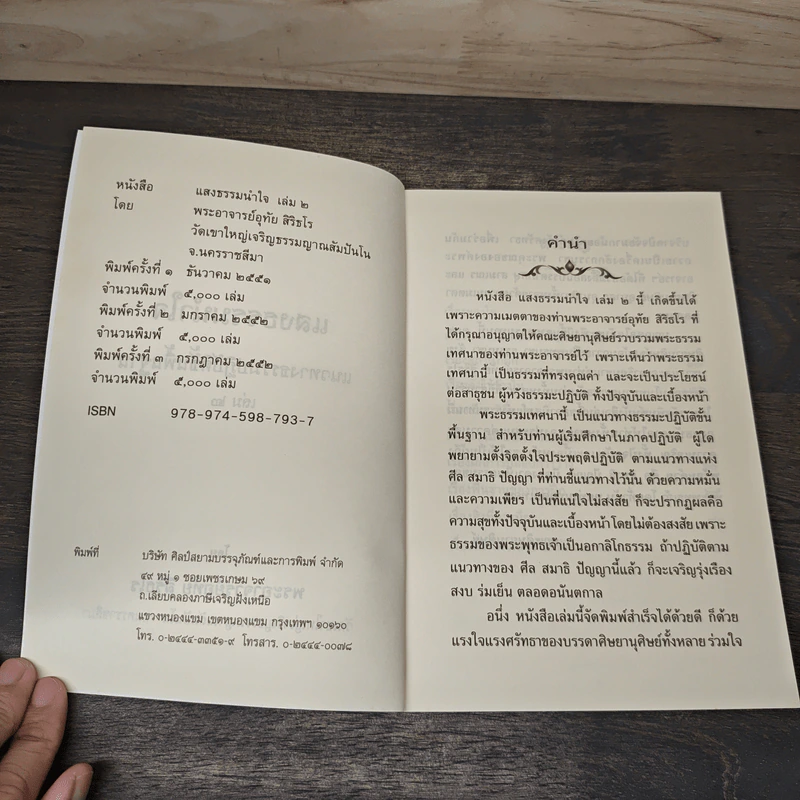 หนังสือ แสงธรรมนำใจ เล่ม ๒
โดย พระอาจารย์อุทัย สิริธโร
วัดเขาใหญ่เจริญธรรมญาณสัมปันโน
จ.นครราชสีมา
พิมพ์ครั้งที่ ๑ ธันวาคม ๒๕๕๑
จำนวนพิมพ์ ๕,๐๐๐ เล่ม
พิมพ์ครั้งที่ ๒ มกราคม ๒๕๕๒
จำนวนพิมพ์ ๕,๐๐๐ เล่ม
พิมพ์ครั้งที่ ๓ กรกฎาคม ๒๕๕๒
จำนวนพิมพ์ ๕,๐๐๐ เล่ม
ISBN 978-974-598-793-7
พิมพ์ที่ บริษัท ศิลป์สยามบรรจุภัณฑ์และการพิมพ์ จำกัด
๔๙ หมู่ ๑ ซอยเพชรเกษม ๖๙
ถ.เลียบคลองภาษีเจริญฝั่งเหนือ
แขวงหนองแขม เขตหนองแขม กรุงเทพฯ ๑๐๑๖๐
โทร. ๐-๒๔๔๔-๓๓๕๑-๙ โทรสาร. ๐-๒๔๔๔-๐๐๗๘
คำนำ
หนังสือ แสงธรรมนำใจ เล่ม ๒ นี้ เกิดขึ้นได้
เพราะความเมตตาของท่านพระอาจารย์อุทัย สิริธโร ที่
ได้กรุณาอนุญาตให้คณะศิษยานุศิษย์รวบรวมพระธรรม
เทศนาของท่านพระอาจารย์ไว้ เพราะเห็นว่าพระธรรม
เทศนานี้ เป็นธรรมที่ทรงคุณค่า และจะเป็นประโยชน์
ต่อสาธุชน ผู้หวังธรรมะปฏิบัติ ทั้งปัจจุบันและเบื้องหน้า
พระธรรมเทศนานี้ เป็นแนวทางธรรมะปฏิบัติขั้น
พื้นฐาน สำหรับท่านผู้เริ่มศึกษาในภาคปฏิบัติ ผู้ใด
พยายามตั้งจิตตั้งใจประพฤติปฏิบัติ ตามแนวทางแห่ง
ศีล สมาธิ ปัญญา ที่ท่านชี้แนวทางไว้นั้น ด้วยความหมั่น
และความเพียร เป็นที่แน่ใจไม่สงสัย ก็จะปรากฏผลคือ
ความสุขทั้งปัจจุบันและเบื้องหน้าโดยไม่ต้องสงสัย เพราะ
ธรรมของพระพุทธเจ้าเป็นอกาลิโกธรรม ถ้าปฏิบัติตาม
แนวทางของ ศีล สมาธิ ปัญญานี้แล้ว ก็จะเจริญรุ่งเรือง
สงบ ร่มเย็น ตลอดอนันตกาล
อนึ่ง หนังสือเล่มนี้จัดพิมพ์สำเร็จได้ด้วยดี ก็ด้วย
แรงใจแรงศรัทธาของบรรดาศิษยานุศิษย์ทั้งหลาย ร่วมใจ